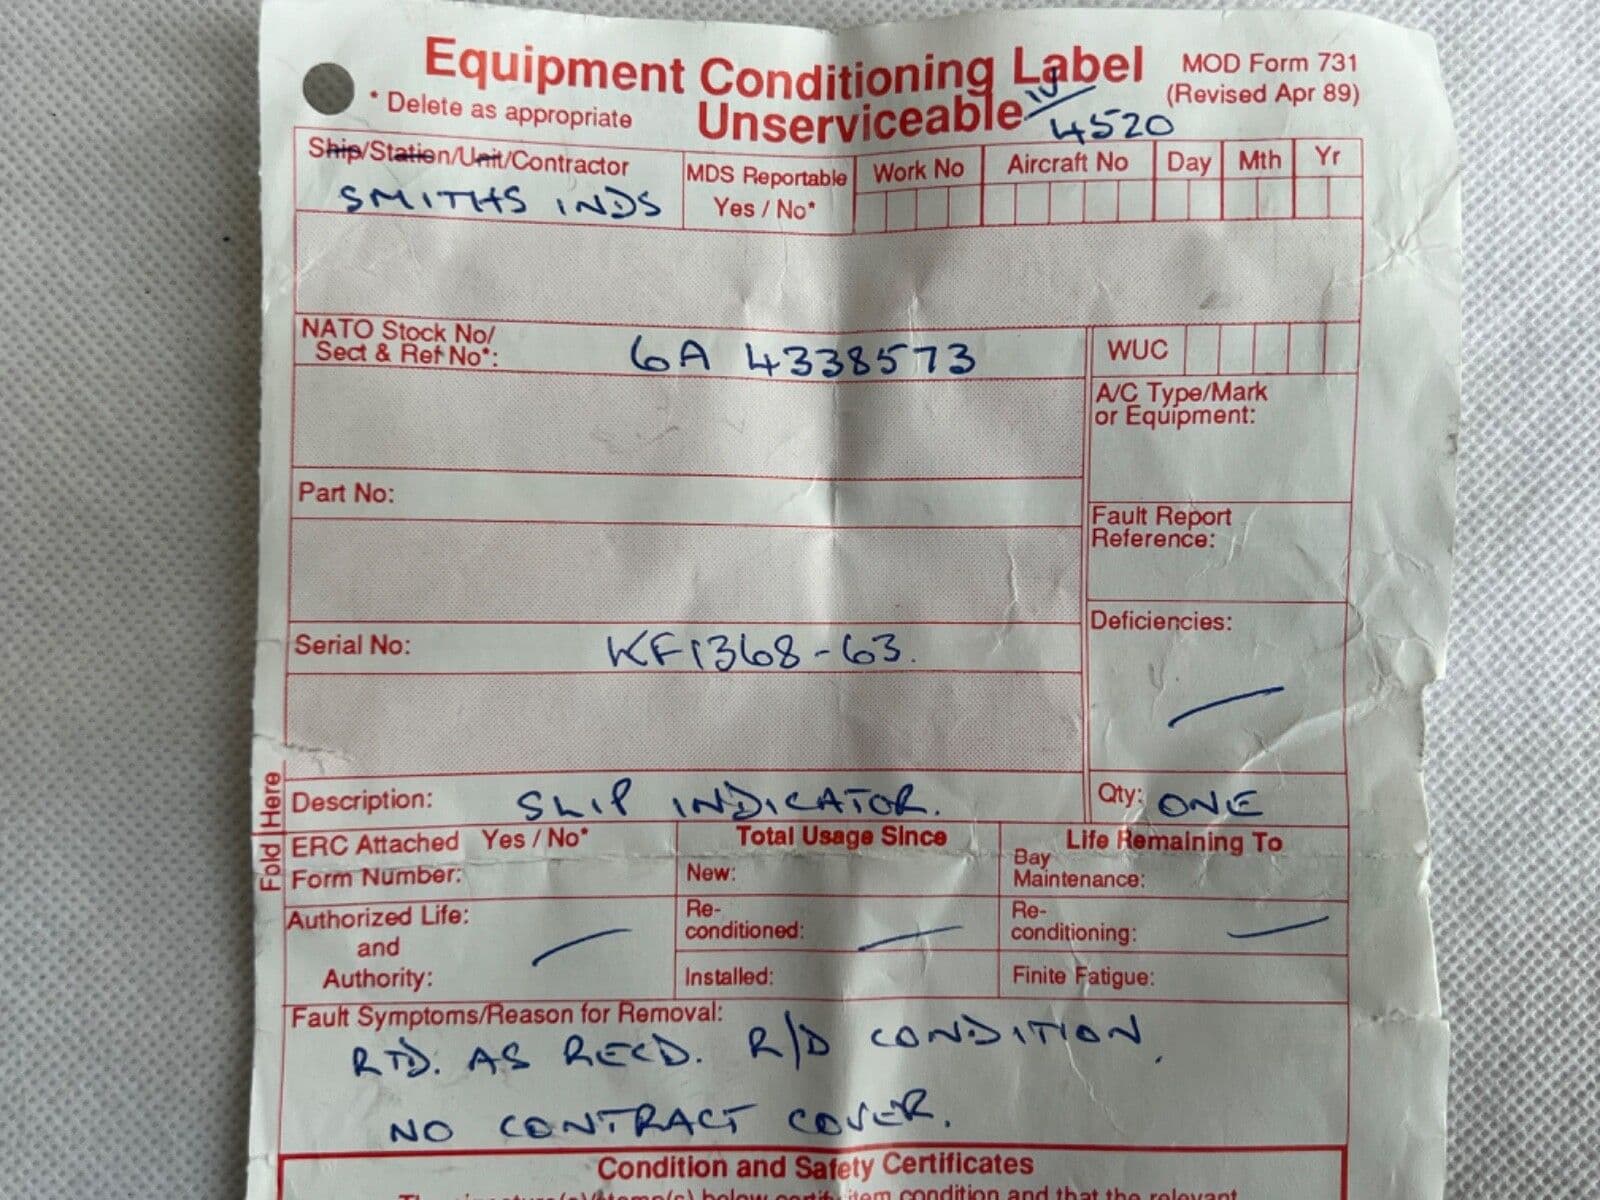 Equipment Conditioning Label
MOD Form 731
* Delete as appropriate
Unserviceable
(Revised Apr 89)
4520
Ship/Station/Unit/Contractor
SMITHS INDS
MDS Reportable
Yes / No*
Work No
Aircraft No
Day
Mth
Yr
NATO Stock No/
Sect & Ref No*:
6A 4338573
WUC
A/C Type/Mark
or Equipment:
Part No:
Fault Report
Reference:
Serial No:
KF1368-63.
Deficiencies:
Fold Here
Description:
SLIP INDICATOR.
Qty: ONE
ERC Attached Yes / No*
Form Number:
Total Usage Since
Life Remaining To
New:
Bay
Maintenance:
Authorized Life:
and
Authority:
Re-
conditioned:
Re-
conditioning:
Installed:
Finite Fatigue:
Fault Symptoms/Reason for Removal:
RTD. AS RECD. R/D CONDITION,
NO CONTRACT COVER.
Condition and Safety Certificates
below certify item condition and that the relevant